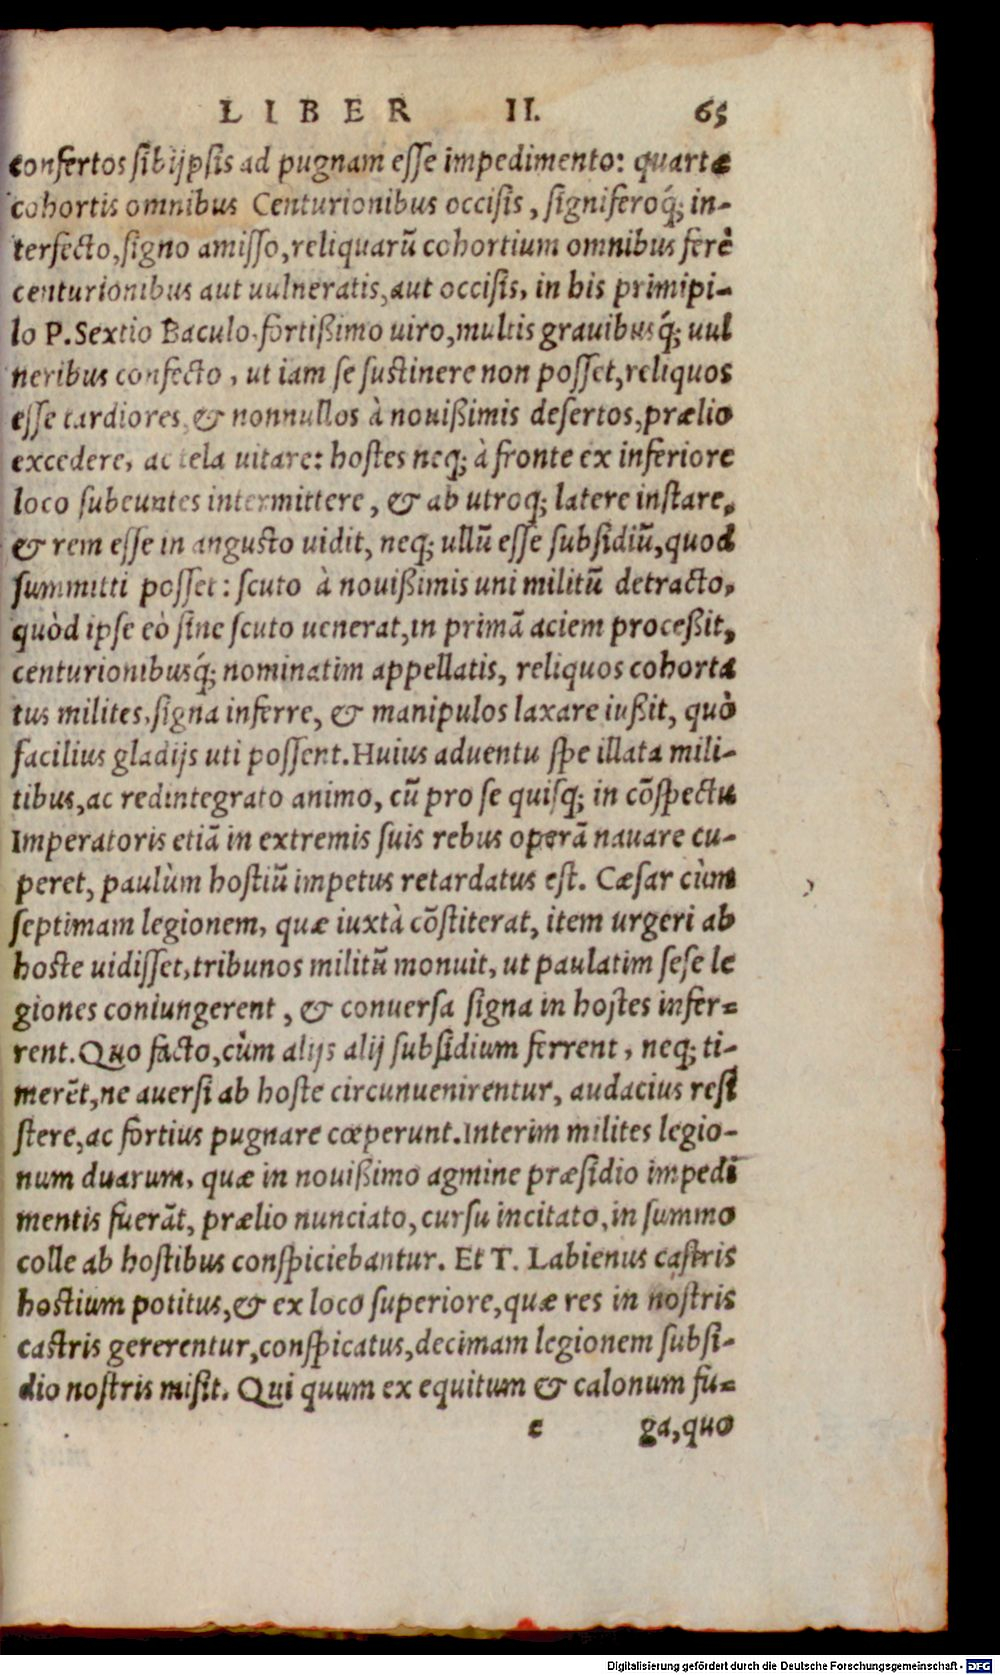 LIBER II. 65
confertos sibijpsis ad pugnam esse impedimento: quartæ
cohortis omnibus Centurionibus occisis, signiferoq́; in-
terfecto, signo amisso, reliquarũ cohortium omnibus ferè
centurionibus aut uulneratis, aut occisis, in his primipi-
lo P. Sextio Baculo, fortißimo uiro, multis grauibusq́; uul
neribus confecto, ut iam se sustinere non posset, reliquos
esse tardiores, & nonnullos à nouißimis desertos, prælio
excedere, ac tela uitare: hostes neq; à fronte ex inferiore
loco subeuntes intermittere, & ab utroq; latere instare,
& rem esse in angusto uidit, neq; ullũ esse subsidiũ, quod
summitti posset: scuto à nouißimis uni militũ detracto,
quòd ipse eò sine scuto uenerat, in primã aciem proceßit,
centurionibusq́; nominatim appellatis, reliquos cohorta
tus milites, signa inferre, & manipulos laxare iußit, quò
facilius gladijs uti possent. Huius aduentu spe illata mili-
tibus, ac redintegrato animo, cũ pro se quisq; in cõspectu
Imperatoris etiã in extremis suis rebus operã nauare cu-
peret, paulùm hostiũ impetus retardatus est. Cæsar cùm
septimam legionem, quæ iuxtà cõstiterat, item urgeri ab
hoste uidisset, tribunos militũ monuit, ut paulatim sese le
giones coniungerent, & conuersa signa in hostes infer-
rent. Quo facto, cùm alijs alij subsidium ferrent, neq; ti-
merẽt, ne auersi ab hoste circunuenirentur, audacius resi
stere, ac fortius pugnare cœperunt. Interim milites legio-
num duarum, quæ in nouißimo agmine præsidio impedi
mentis fuerãt, prælio nunciato, cursu incitato, in summo
colle ab hostibus conspiciebantur. Et T. Labienus castris
hostium potitus, & ex loco superiore, quæ res in nostris
castris gererentur, conspicatus, decimam legionem subsi-
dio nostris misit. Qui quum ex equitum & calonum fu-
e ga, quo
Digitalisierung gefördert durch die Deutsche Forschungsgemeinschaft - DFG